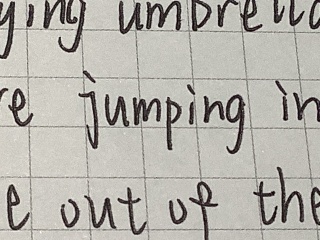 ying umbrella
re jumping in
e out of the